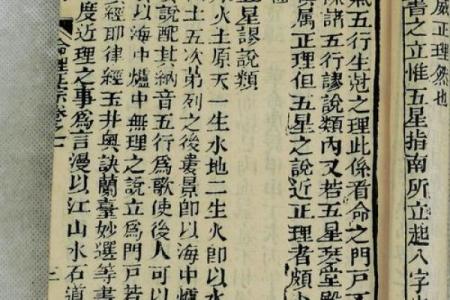 威正理然也
者之立惟五星指南所立起八字
氣五行生尅之理此係看命之門戸不
除諸五行謬說類內又若五星琹堂殿
真属正理但五星之說近正理者頗少
五星謬說類
水火土原天一生水地二生火即以水
土五次第列之後婁景即以海中爐
說配其納音五行爲歌使後人可以
以海中爐中無理之說立爲門戸若
經耶律經玉井奥訣蘭臺妙選等書
度近理之事爲言漫以江山水石道
命理正宗卷之一
二